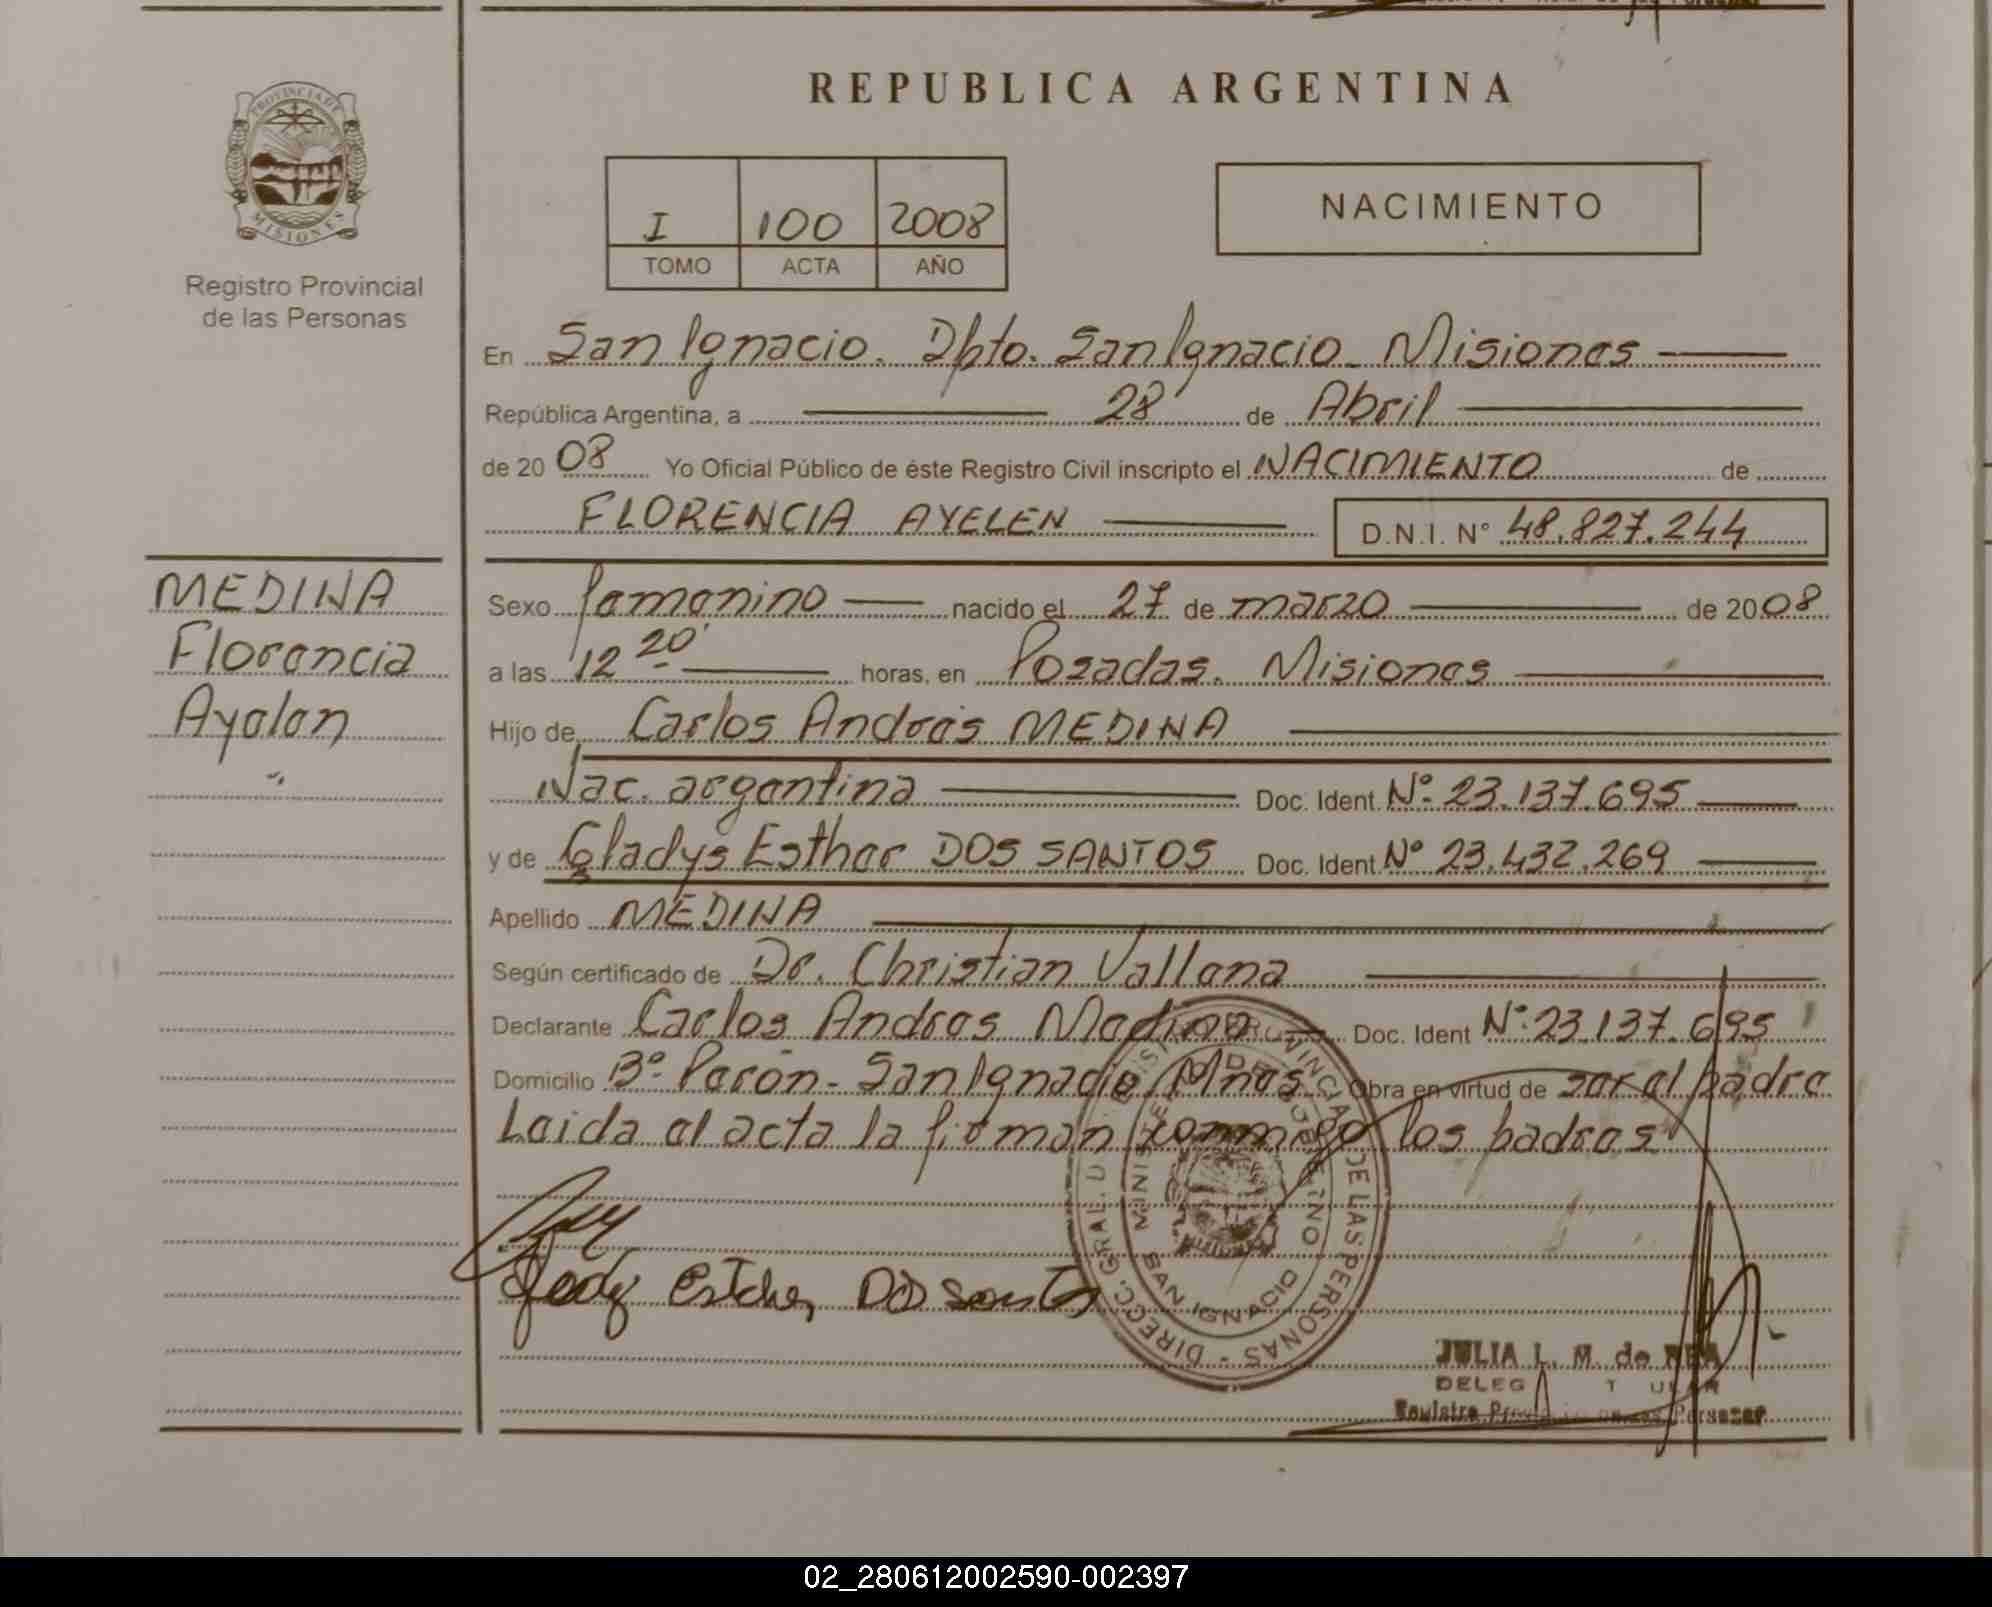 PROVINCIA DE
MISIONES
Registro Provincial
de las Personas
MEDINA
Florencia
Ayelen
REPUBLICA ARGENTINA
I 100 2008
TOMO ACTA AÑO
NACIMIENTO
En San Ignacio. Dpto. San Ignacio - Misiones
República Argentina, a 28 de Abril
de 2008 Yo Oficial Público de éste Registro Civil inscripto el NACIMIENTO de
FLORENCIA AYELEN D.N.I. N° 48.827.244
Sexo femenino nacido el 27 de marzo de 2008
a las 12 20' horas, en Posadas. Misiones
Hijo de Carlos Andrés MEDINA
Nac. argentina Doc. Ident. N°. 23.137.695
y de Gladys Esther DOS SANTOS Doc. Ident. N° 23.432.269
Apellido MEDINA
Según certificado de Dr. Christian Vallena
Declarante Carlos Andres Medina Doc. Ident N°. 23.137.695
Domicilio B° Perón - San Ignacio, Mnes Obra en virtud de ser el padre
Leida el acta la firman conmigo los padres
Esther Dos Santos
DIRECC. GRAL. DE LAS PERSONAS
MINISTERIO DE GOBIERNO
SAN IGNACIO
JULIA L. M. de REA
02_280612002590-002397